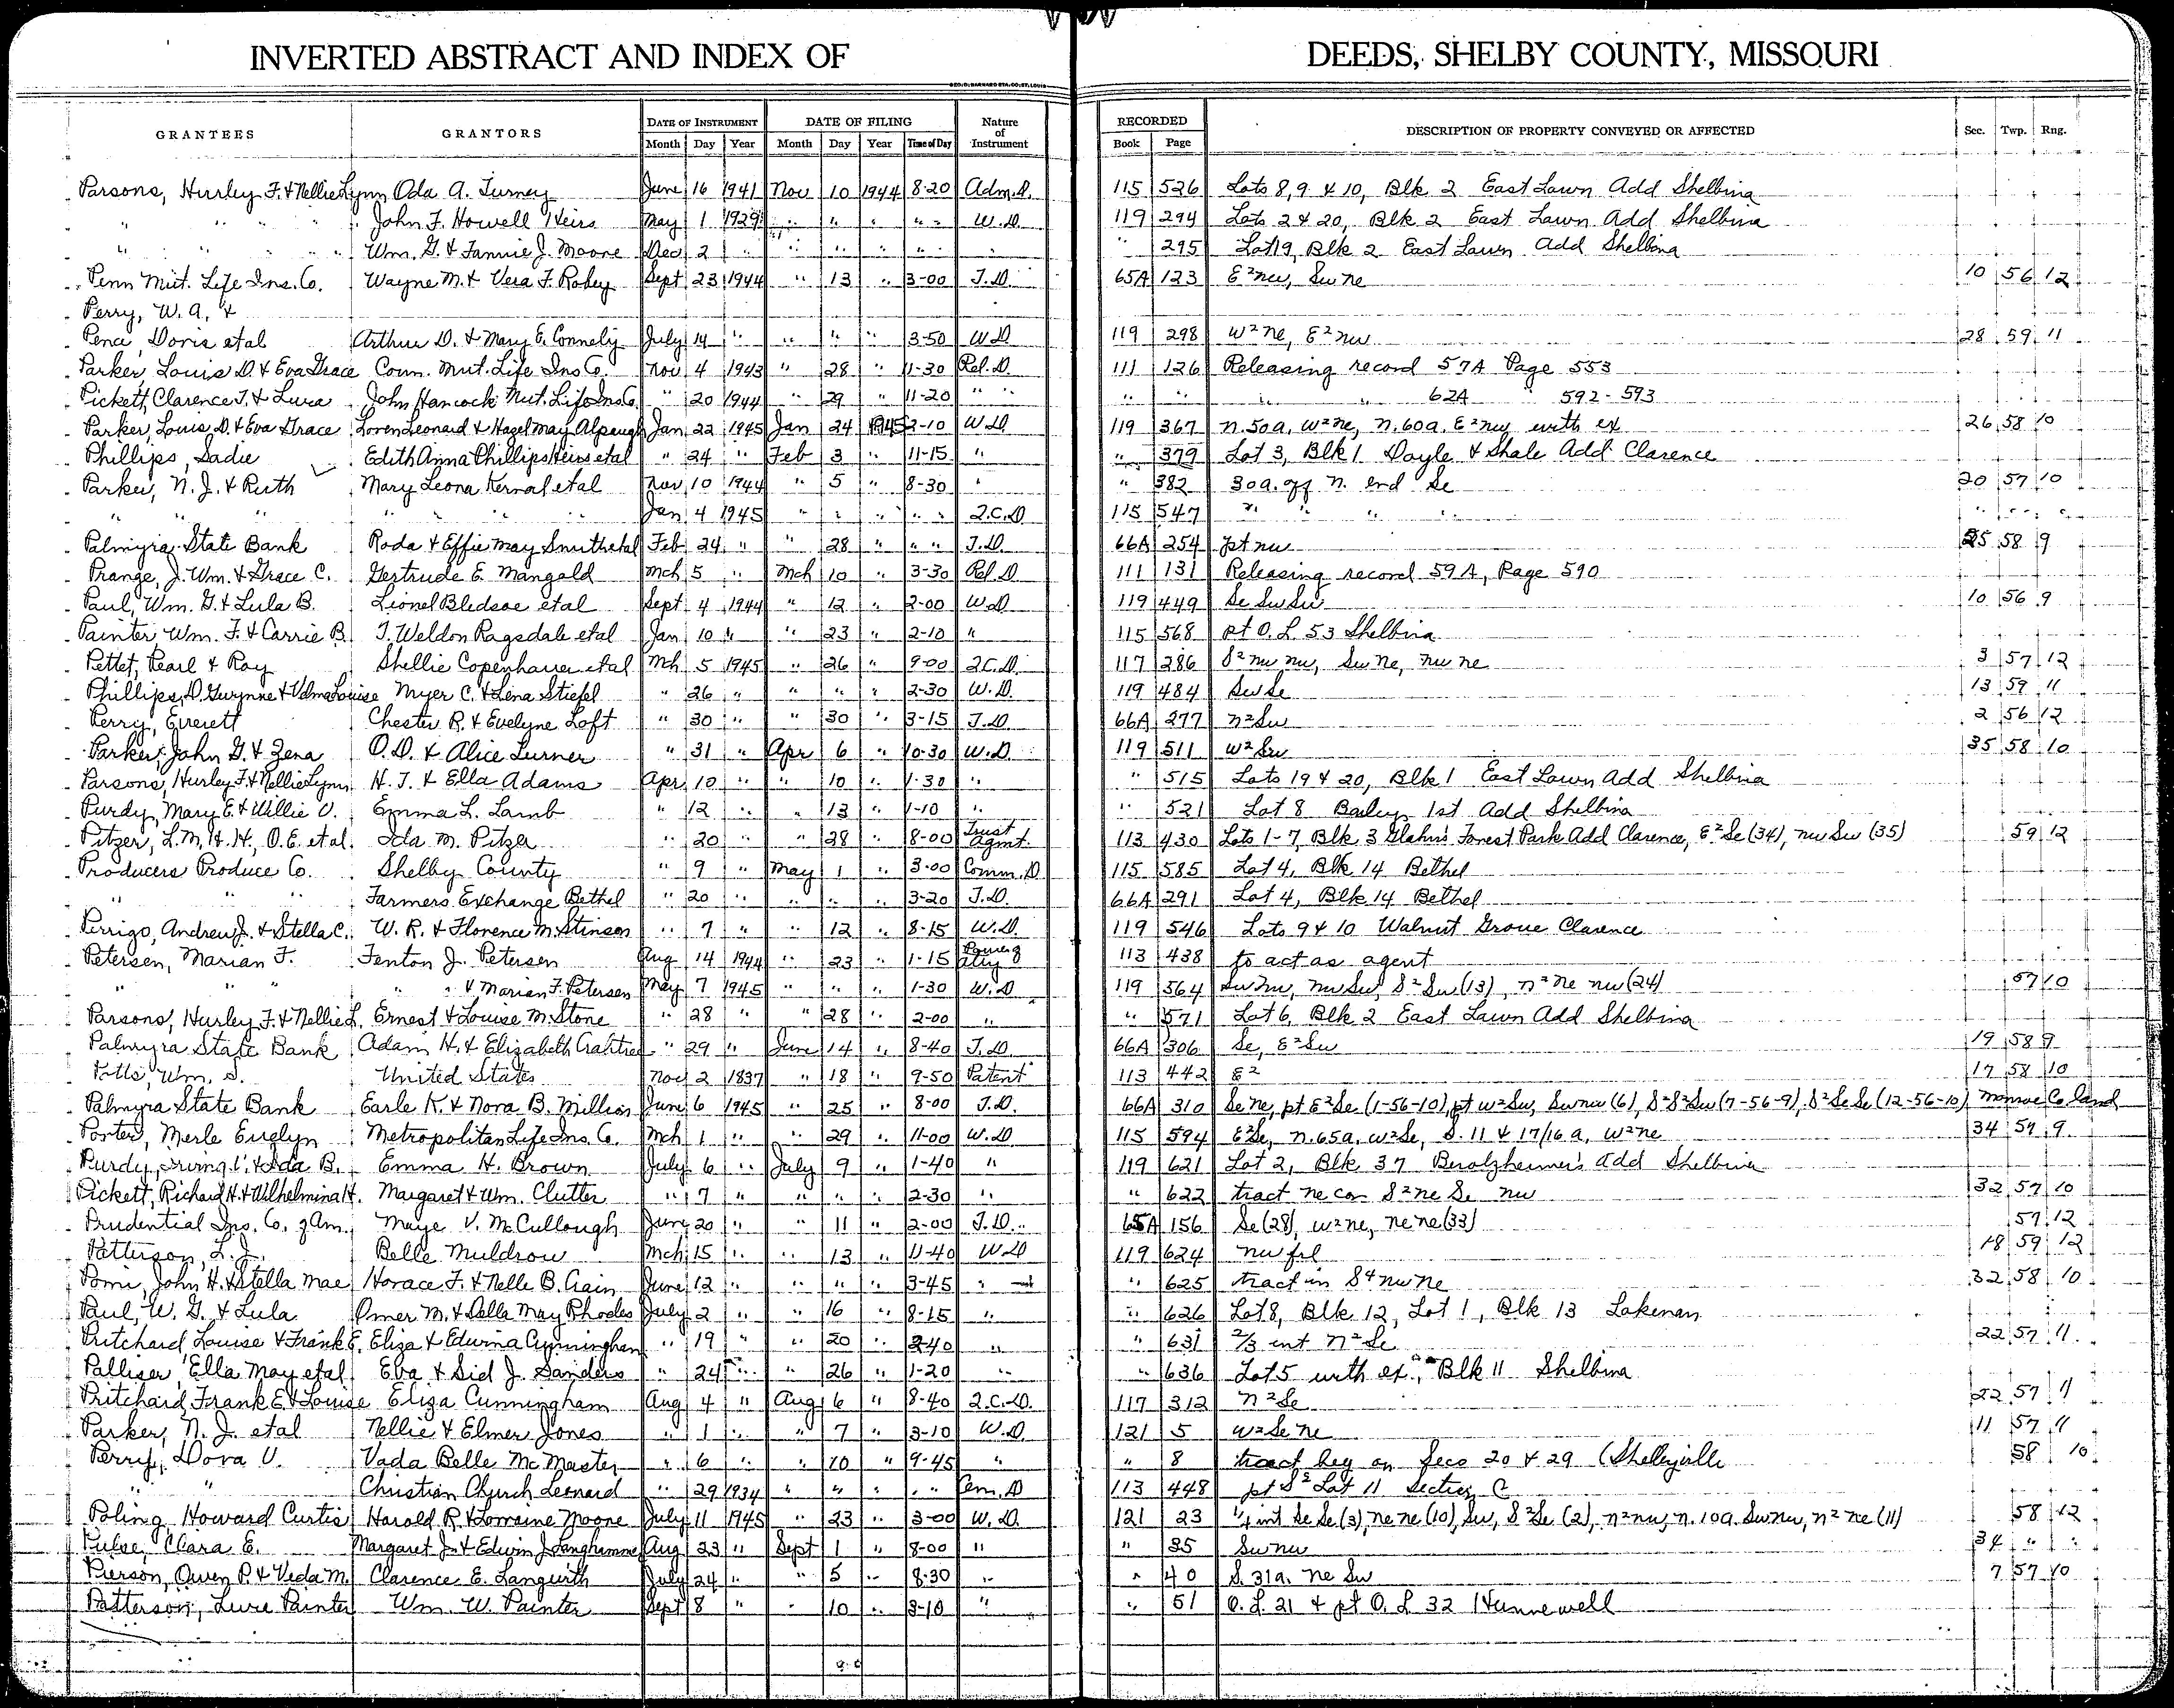 INVERTED ABSTRACT AND INDEX OF DEEDS, SHELBY COUNTY, MISSOURI
GRANTEES GRANTORS DATE OF INSTRUMENT DATE OF FILING Nature of Instrument RECORDED DESCRIPTION OF PROPERTY CONVEYED OR AFFECTED Sec. Twp. Rng.
Month Day Year Month Day Year Time of Day Book Page
Parsons, Hurley F. & Nellie Lynn Oda A. Turney June 16 1941 Nov 10 1944 8-20 Adm. D. 115 526 Lots 8, 9 & 10, Blk 2 East Lawn Add Shelbina
" " " " John F. Howell Heirs May 1 1929 " " " " " W.D. 119 294 Lots 2 & 20, Blk 2 East Lawn Add Shelbina
" " " " Wm. G. & Fannie J. Moore Dec 2 " " " " " " " 295 Lot 19, Blk 2 East Lawn Add Shelbina
Penn Mut. Life Ins. Co. Wayne M. & Vera F. Robey Sept 23 1944 " 13 " 3-00 T.D. 65A 123 E²nw, Sw ne 10 56 12
Perry, W. A. &
Pence, Doris etal Arthur D. & Mary E. Connely July 14 " " " " 3-50 WD 119 298 W²ne, E²nw 28 59 11
Parker, Louis D. & Eva Grace Conn. Mut. Life Ins Co. Nov 4 1943 " 28 " 1-30 Rel. D. 111 126 Releasing record 57A Page 553
Pickett, Clarence T. & Lura John Hancock Mut. Life Ins Co. " 20 1944 " 29 " 11-20 " " " " " " 62A " 592-593
Parker, Louis D. & Eva Grace Loren Leonard & Hazel May Alpaugh Jan 22 1945 Jan 24 1945 2-10 WD 119 367 n. 50a. W²ne, n. 60a. E²nw with ex 26 58 10
Phillips, Sadie Edith Anna Phillips Heirs etal " 24 " Feb 3 " 11-15 " " 379 Lot 3, Blk 1 Doyle & Shale Add Clarence
Parker, N. J. & Ruth Mary Leona Kernal etal Nov 10 1944 " 5 " 8-30 " " 382 30a. off n. end Se 20 57 10
" " " " " " Jan 4 1945 " " " " " Q.C.D 115 547 " " " " " " "
Palmyra State Bank Roda & Effie May Smith etal Feb 24 " " 28 " " " T.D. 66A 254 pt nw 25 58 9
Prange, J. Wm. & Grace C. Gertrude E. Mangold Mch 5 " Mch 10 " 3-30 Rel. D 111 131 Releasing record 59A, Page 590
Paul, Wm. G. & Lula B. Lionel Bledsoe etal Sept 4 1944 " 12 " 2-00 W.D 119 449 Se Sw Sw 10 56 9
Painter Wm. F. & Carrie B. T. Weldon Ragsdale etal Jan 10 " " 23 " 2-10 " 115 568 pt O. L. 53 Shelbina
Pettet, Pearl & Roy Shellie Copenhaver etal Mch 5 1945 " 26 " 9-00 Q.C.D. 117 286 S²nw nw, Sw ne, nw ne 3 57 12
Phillips, D. Gwynne & Velma Louise Myer C. & Lena Stiefel " 26 " " " " 2-30 W.D. 119 484 Sw Se 13 59 11
Perry, Everett Chester R. & Evelyne Loft " 30 " " 30 " 3-15 T.D. 66A 277 n²Sw 2 56 12
Parker, John G. & Zena O. D. & Alice Turner " 31 " Apr 6 " 10-30 W.D. 119 511 W²Sw 35 58 10
Parsons, Hurley F. & Nellie Lynn H. T. & Ella Adams Apr 10 " " 10 " 1-30 " " 515 Lots 19 & 20, Blk 1 East Lawn Add Shelbina
Purdy, Mary E. & Willie V. Emma L. Lamb " 12 " " 13 " 1-10 " " 521 Lot 8 Bailey 1st Add Shelbina
Pitzer, L. M., H. H., O. E. etal. Ida M. Pitzer " 20 " " 28 " 8-00 Trust Agmt. 113 430 Lots 1-7, Blk 3 Glahn's Forest Park Add Clarence, E²Se (34), nw Sw (35) 59 12
Producers Produce Co. Shelby County " 9 " May 1 " 3-00 Comm. D 115 585 Lot 4, Blk 14 Bethel
" " " Farmers Exchange Bethel " 20 " " " " 3-20 T.D. 66A 291 Lot 4, Blk 14 Bethel
Perrigo, Andrew J. & Stella C. W. R. & Florence M. Stinson " 7 " " 12 " 8-15 W.D. 119 546 Lots 9 & 10 Walnut Grove Clarence
Petersen, Marian F. Fenton J. Petersen Aug 14 1944 " 23 " 1-15 Power of Atty 113 438 to act as agent
" " " " & Marian F. Petersen May 7 1945 " " " 1-30 W.D 119 564 Sw nw, nw Sw, S²Sw (13), n²ne nw (24) 57 10
Parsons, Hurley F. & Nellie L. Ernest & Louise M. Stone " 28 " " 28 " 2-00 " " 571 Lot 6, Blk 2 East Lawn Add Shelbina
Palmyra State Bank Adam H. & Elizabeth Crabtree " 29 " June 14 " 8-40 T.D 66A 306 Se, E²Sw 19 58 9
Potts, Wm. S. United States Nov 2 1837 " 18 " 9-50 Patent 113 442 E² 17 58 10
Palmyra State Bank Earle K. & Nora B. Million June 6 1945 " 25 " 8-00 T.D. 66A 310 Se ne, pt E²Se (1-56-10) pt W²Sw, Sw nw (6), S²S²Sw (7-56-9), S²Se Se (12-56-10) Monroe Co land
Porter, Merle Evelyn Metropolitan Life Ins. Co. Mch 1 " " 29 " 11-00 W.D. 115 594 E²Se, n. 65a. W²Se, S. 11 & 17/16 a, W²ne 34 59 9
Purdy, Irving V. & Ida B. Emma H. Brown July 6 " July 9 " 1-40 " 119 621 Lot 2, Blk 37 Berolzheimer's Add Shelbina
Pickett, Richard H. & Wilhelmina H. Margaret & Wm. Clutter " 7 " " " " 2-30 " " 622 tract ne cor S²ne Se nw 32 57 10
Prudential Ins. Co. of Am. Maye V. McCullough June 20 " " 11 " 2-00 T.D. 65A 156 Se (28), W²ne, ne ne (33) 59 12
Patterson, L. J. Belle Muldrow Mch 15 " " 13 " 11-40 WD 119 624 nw frl 18 59 12
Pomi, John H. & Stella Mae Horace F. & Nelle B. Crain June 12 " " " " 3-45 " " 625 tract in S⁴ nw ne 32 58 10
Paul, W. G. & Lula Omer M. & Della May Rhodes July 2 " " 16 " 8-15 " " 626 Lot 8, Blk 12, Lot 1, Blk 13 Lakenan
Pritchard Louise & Frank E. Eliza & Edwina Cunningham " 19 " " 20 " 2-40 " " 631 2/3 int n²Se 22 57 11
Palliser, Ella May etal Eva & Sid J. Sanders " 24 " " 26 " 1-20 " " 636 Lot 5 with ex., Blk 11 Shelbina
Pritchard, Frank E. & Louise Eliza Cunningham Aug 4 " Aug 6 " 8-40 Q.C.D. 117 312 n²Se 22 57 11
Parker, N. J. etal Nellie & Elmer Jones " 1 " " 7 " 3-10 W.D. 121 5 W²Se ne 11 57 11
Perry, Dora V. Vada Belle McMaster " 6 " " 10 " 9-45 " " 8 tract beg on Secs 20 & 29 (Shelbyville 58 10
" " Christian Church Leonard " 29 1934 " " " " Cem. D 113 448 pt S² Lot 11 Section C
Poling Howard Curtis Harold R. & Lorraine Moore July 11 1945 " 23 " 3-00 W.D. 121 23 1/4 int Se Se (3), ne ne (10), Sw, S²Se (2), n²nw, n. 10a. Sw nw, n² ne (11) 58 12
Pulse, Clara E. Margaret J. & Edwin J. Langhammer Aug 23 " Sept 1 " 8-00 " " 35 Sw nw 34 " "
Pierson, Owen P. & Veda M. Clarence E. Langwith July 24 " " 5 " 8-30 " " 40 S. 31a. ne Sw 7 57 10
Patterson, Lura Painter Wm. W. Painter Sept 8 " " 10 " 3-10 " " 51 O. L. 21 & pt O. L 32 Hunnewell